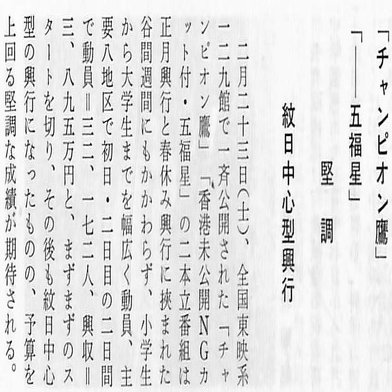 「チャンピオン鷹」
「――五福星」
堅調
紋日中心型興行
二月二十三日(土)、全国東映系
一二九館で一斉公開された「チャ
ンピオン鷹」「香港未公開NGカ
ット付・五福星」の二本立番組は
正月興行と春休み興行に挟まれた
谷間週間にもかかわらず、小学生
から大学生までを幅広く動員、主
要八地区で初日・二日目の二日間
で動員=三二、一七二人、興収=
三、八九五万円と、まずまずのス
タートを切り、その後も紋日中心
型の興行になったものの、予算を
上回る堅調な成績が期待される。